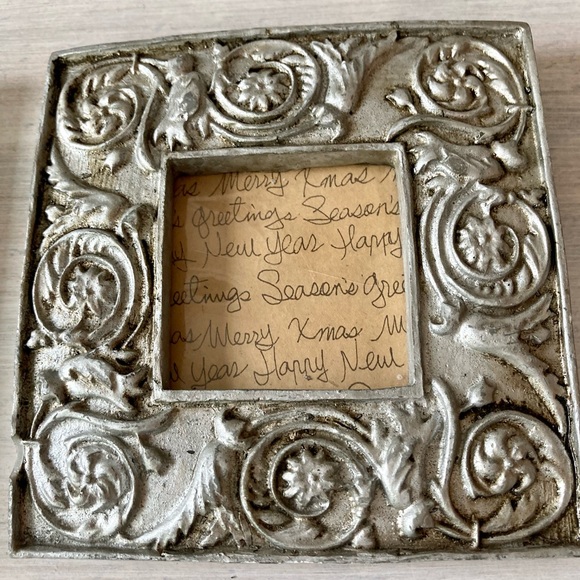 as Merry Xmas M
s Greetings Season's
y New Year Happy
eetings Season's Gree
as Merry Xmas M
Year Happy New